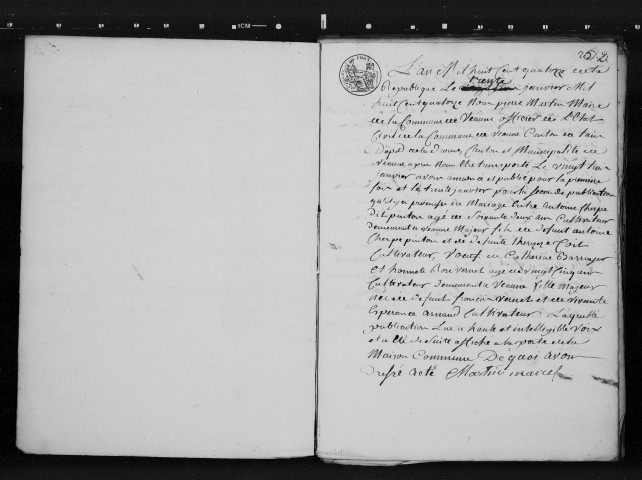 L'an Mil huit Cent quatorze et le
trente
Republique Le janvier Mil
huit Cent quatorze Nous pierre Martin Maire
de la Commune de veaune officier de L'Etat
Civil de la Commune de veaune Canton de tain
Canton et Municipalité de
veaune Le vingt trois
janvier avons annoncé et publié pour la premiere
fois et le trente janvier pour la seconde publication
qu'il y a promesse de Mariage Entre antoine Cherpe
dit pinton agé de soixante deux ans Cultivateur
demeurant a veaune Majeur fils de defunt antoine
Cherpe pinton et de defunte
Cultivateur, veuf de Catherine
Et honnete Rose vernet age de vingt Cinq ans
Cultivateur demeurant a veaune fille Majeur
de defunt francois vernet et de vivante
Esperance arnaud Cultivateur Laquelle
publication Lue a haute et intelligible voix
et a été de suite affiché a la porte de la
Maison Commune De quoi avons
dressé acte Martin maire